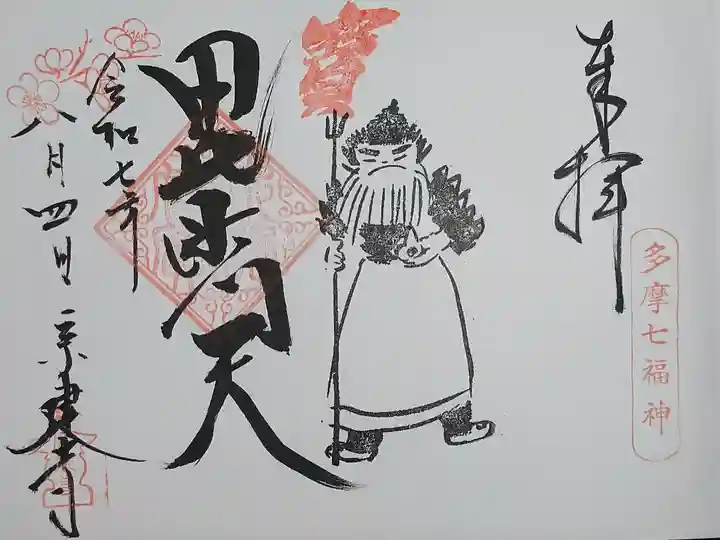 奉拝
多摩七福神
毘沙門天
令和七年
八月四日
宗建寺